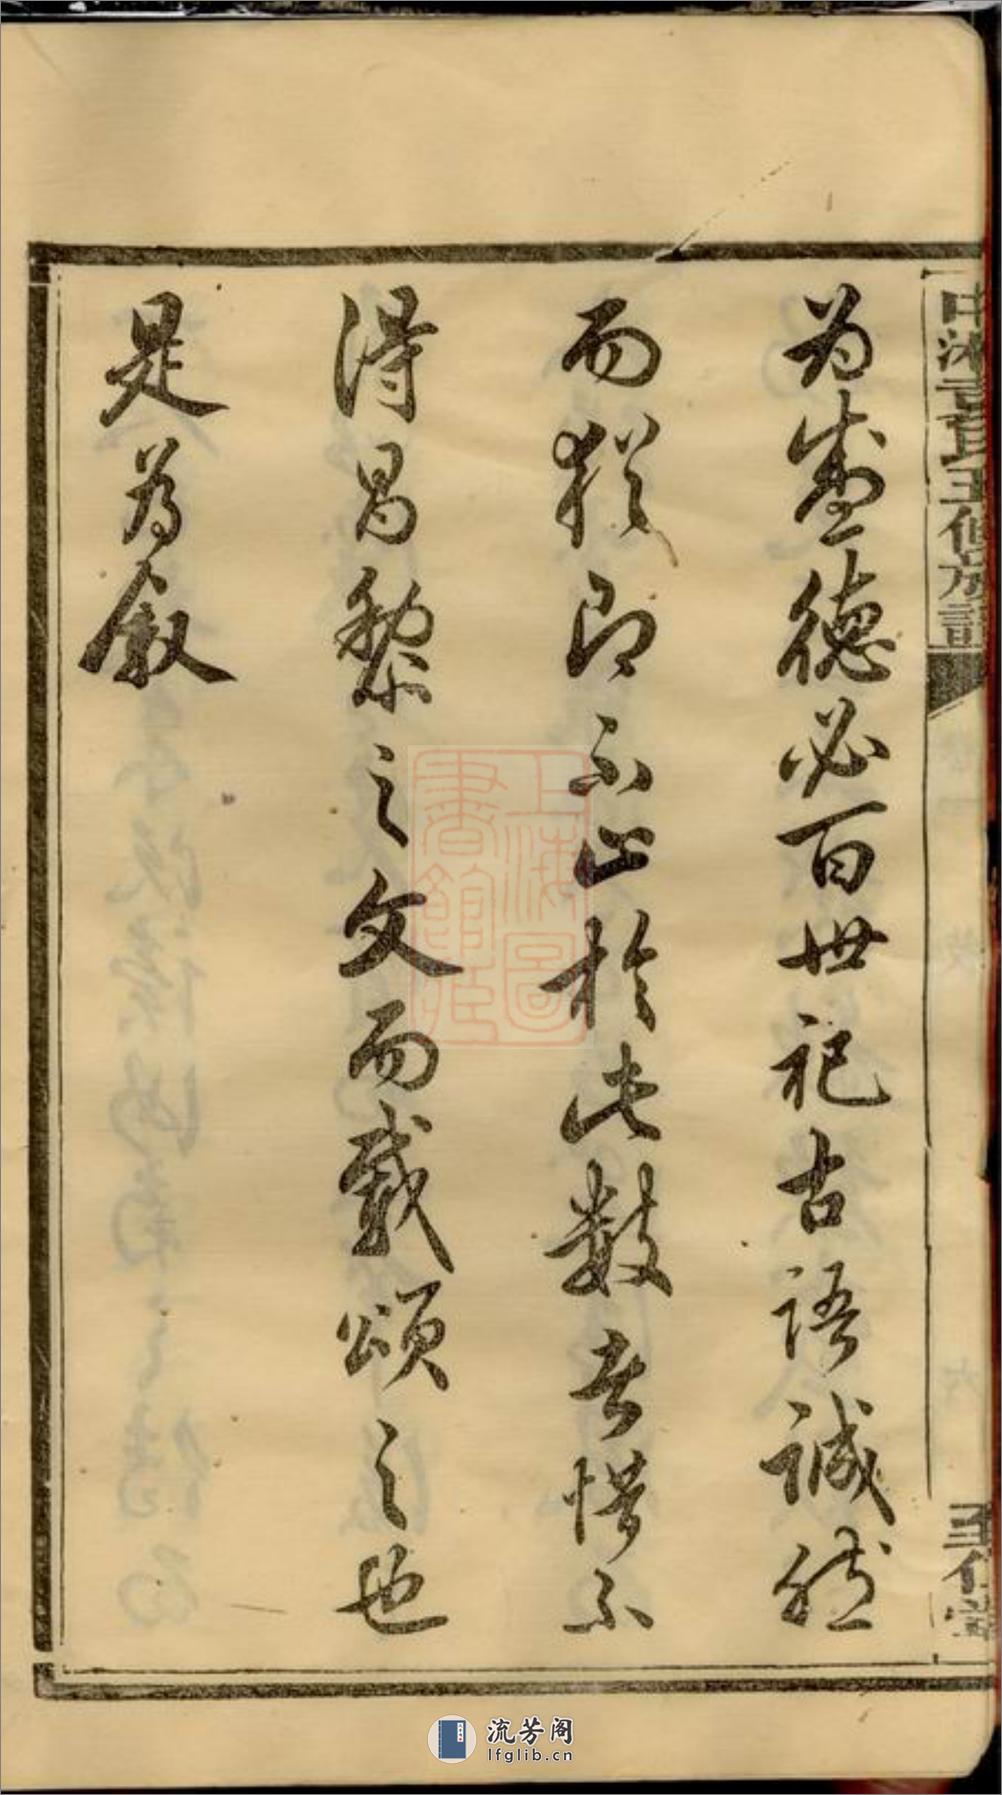 中湘袁氏五修族譜
為盛德必百世祀古語誠然
而即不止於此數者惜不
得昌黎之文而載頌之也
是為叙
上海圖
書館藏
流芳阁
lfglib.cn